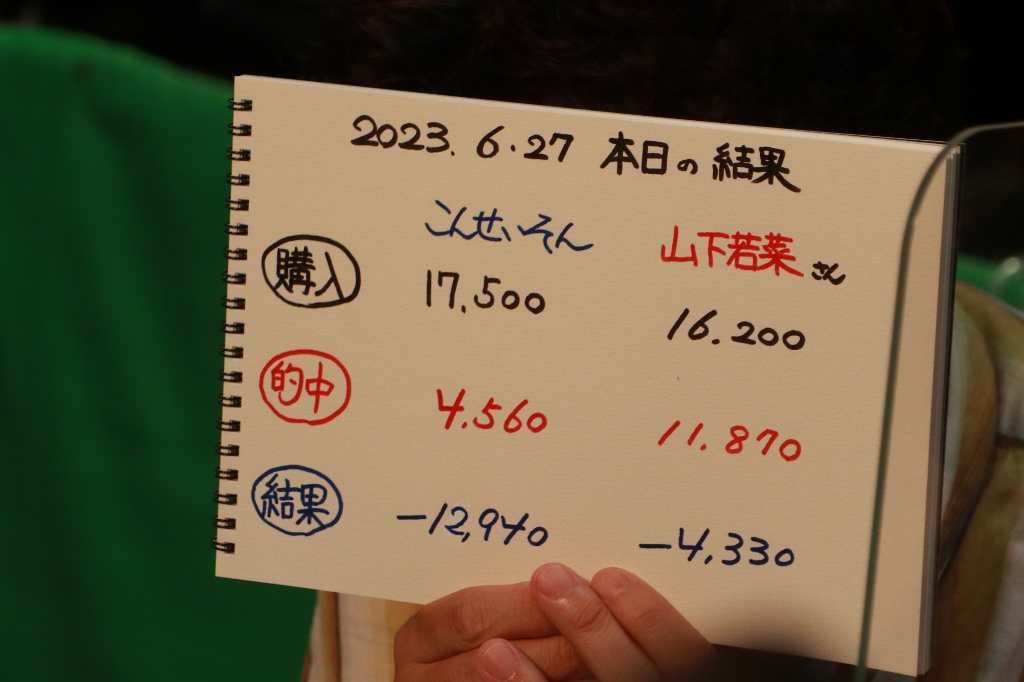 2023.6.27 本日の結果
こんせいそん 山下若菜さん
購入 17,500 16.200
的中 4.560 11.870
結果 -12,940 -4,330